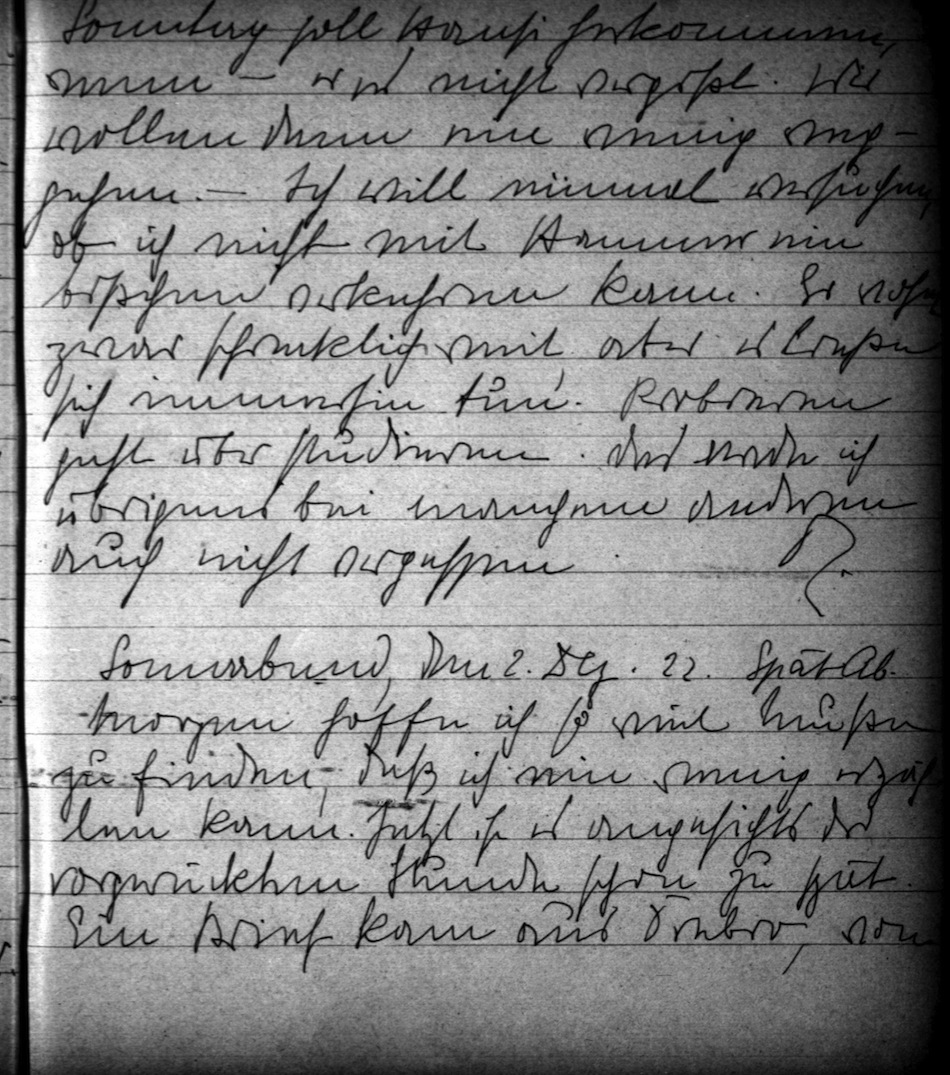 Sonntag soll Hansi herkommen,
wenn — er es nicht vergißt. Wir
wollen dann ein wenig weg-
gehen. — Ich will einmal versuchen,
ob ich nicht mit Hammer ein
bißchen verkehren kann. Er
zwar schrecklich weit, aber es ließe
sich immerhin tun. Probieren
geht über studieren. Das werde ich
übrigens bei manchem anderen
auch nicht vergessen.
Sonnabend, den 2. Dez. 22. Spät Ab.
Morgen hoffe ich so viel Muße
zu finden, daß ich ein wenig erzäh
len kann. Jetzt ist es angesichts der
vorgerückten Stunde schon zu spät.
Ein Brief kam aus Örebro, von